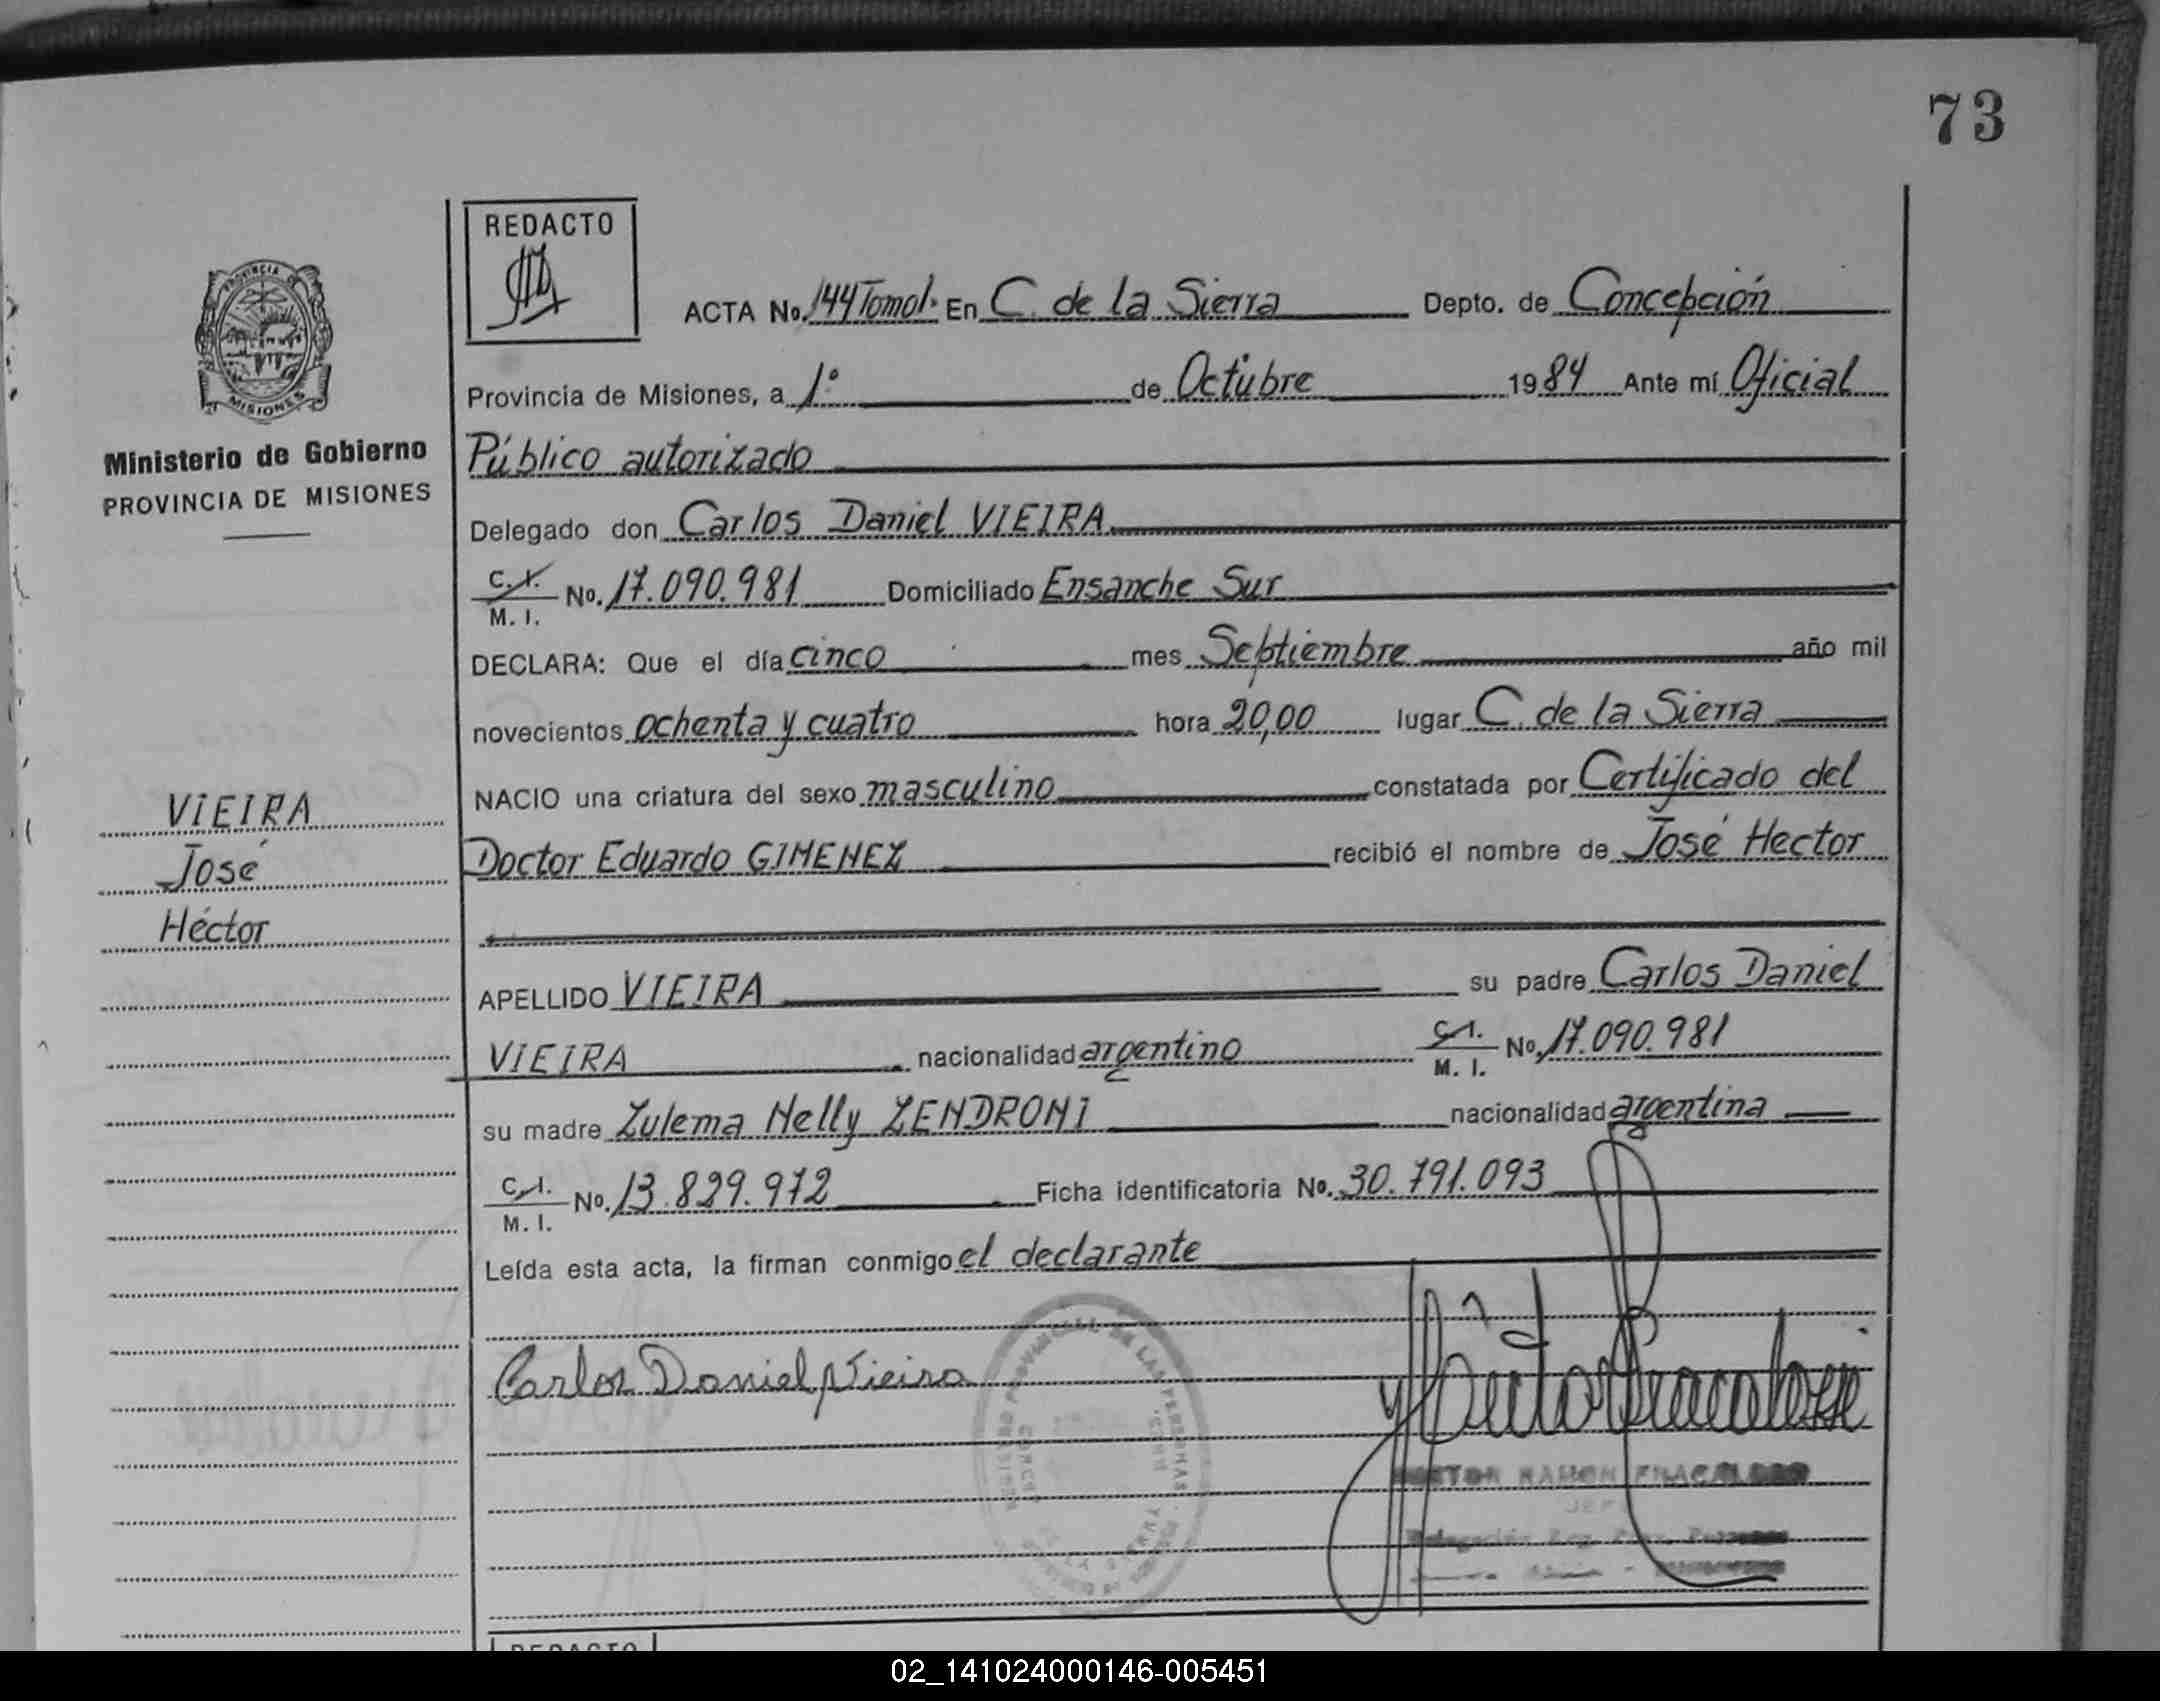 73
REDACTO
ACTA No. 144 Tomo I. En C. de la Sierra Depto. de Concepción
Provincia de Misiones, a 1º de Octubre 1984 Ante mí Oficial
Público autorizado
Delegado don Carlos Daniel VIEIRA
C. I. / M. I. No. 17.090.981 Domiciliado Ensanche Sur
DECLARA: Que el día cinco mes Septiembre año mil
novecientos ochenta y cuatro hora 20,00 lugar C. de la Sierra
NACIO una criatura del sexo masculino constatada por Certificado del
Doctor Eduardo GIMENEZ recibió el nombre de José Hector
APELLIDO VIEIRA su padre Carlos Daniel
VIEIRA nacionalidad argentino C. I. / M. I. No. 17.090.981
su madre Zulema Nelly ZENDRONI nacionalidad argentina
C. I. / M. I. No. 13.829.972 Ficha identificatoria No. 30.791.093
Leída esta acta, la firman conmigo el declarante
Carlos Daniel Vieira
PROVINCIA
MISIONES
Ministerio de Gobierno
PROVINCIA DE MISIONES
VIEIRA
José
Héctor
RAMON FRACALOSSI
JEFE
REDACTO
02_141024000146-005451